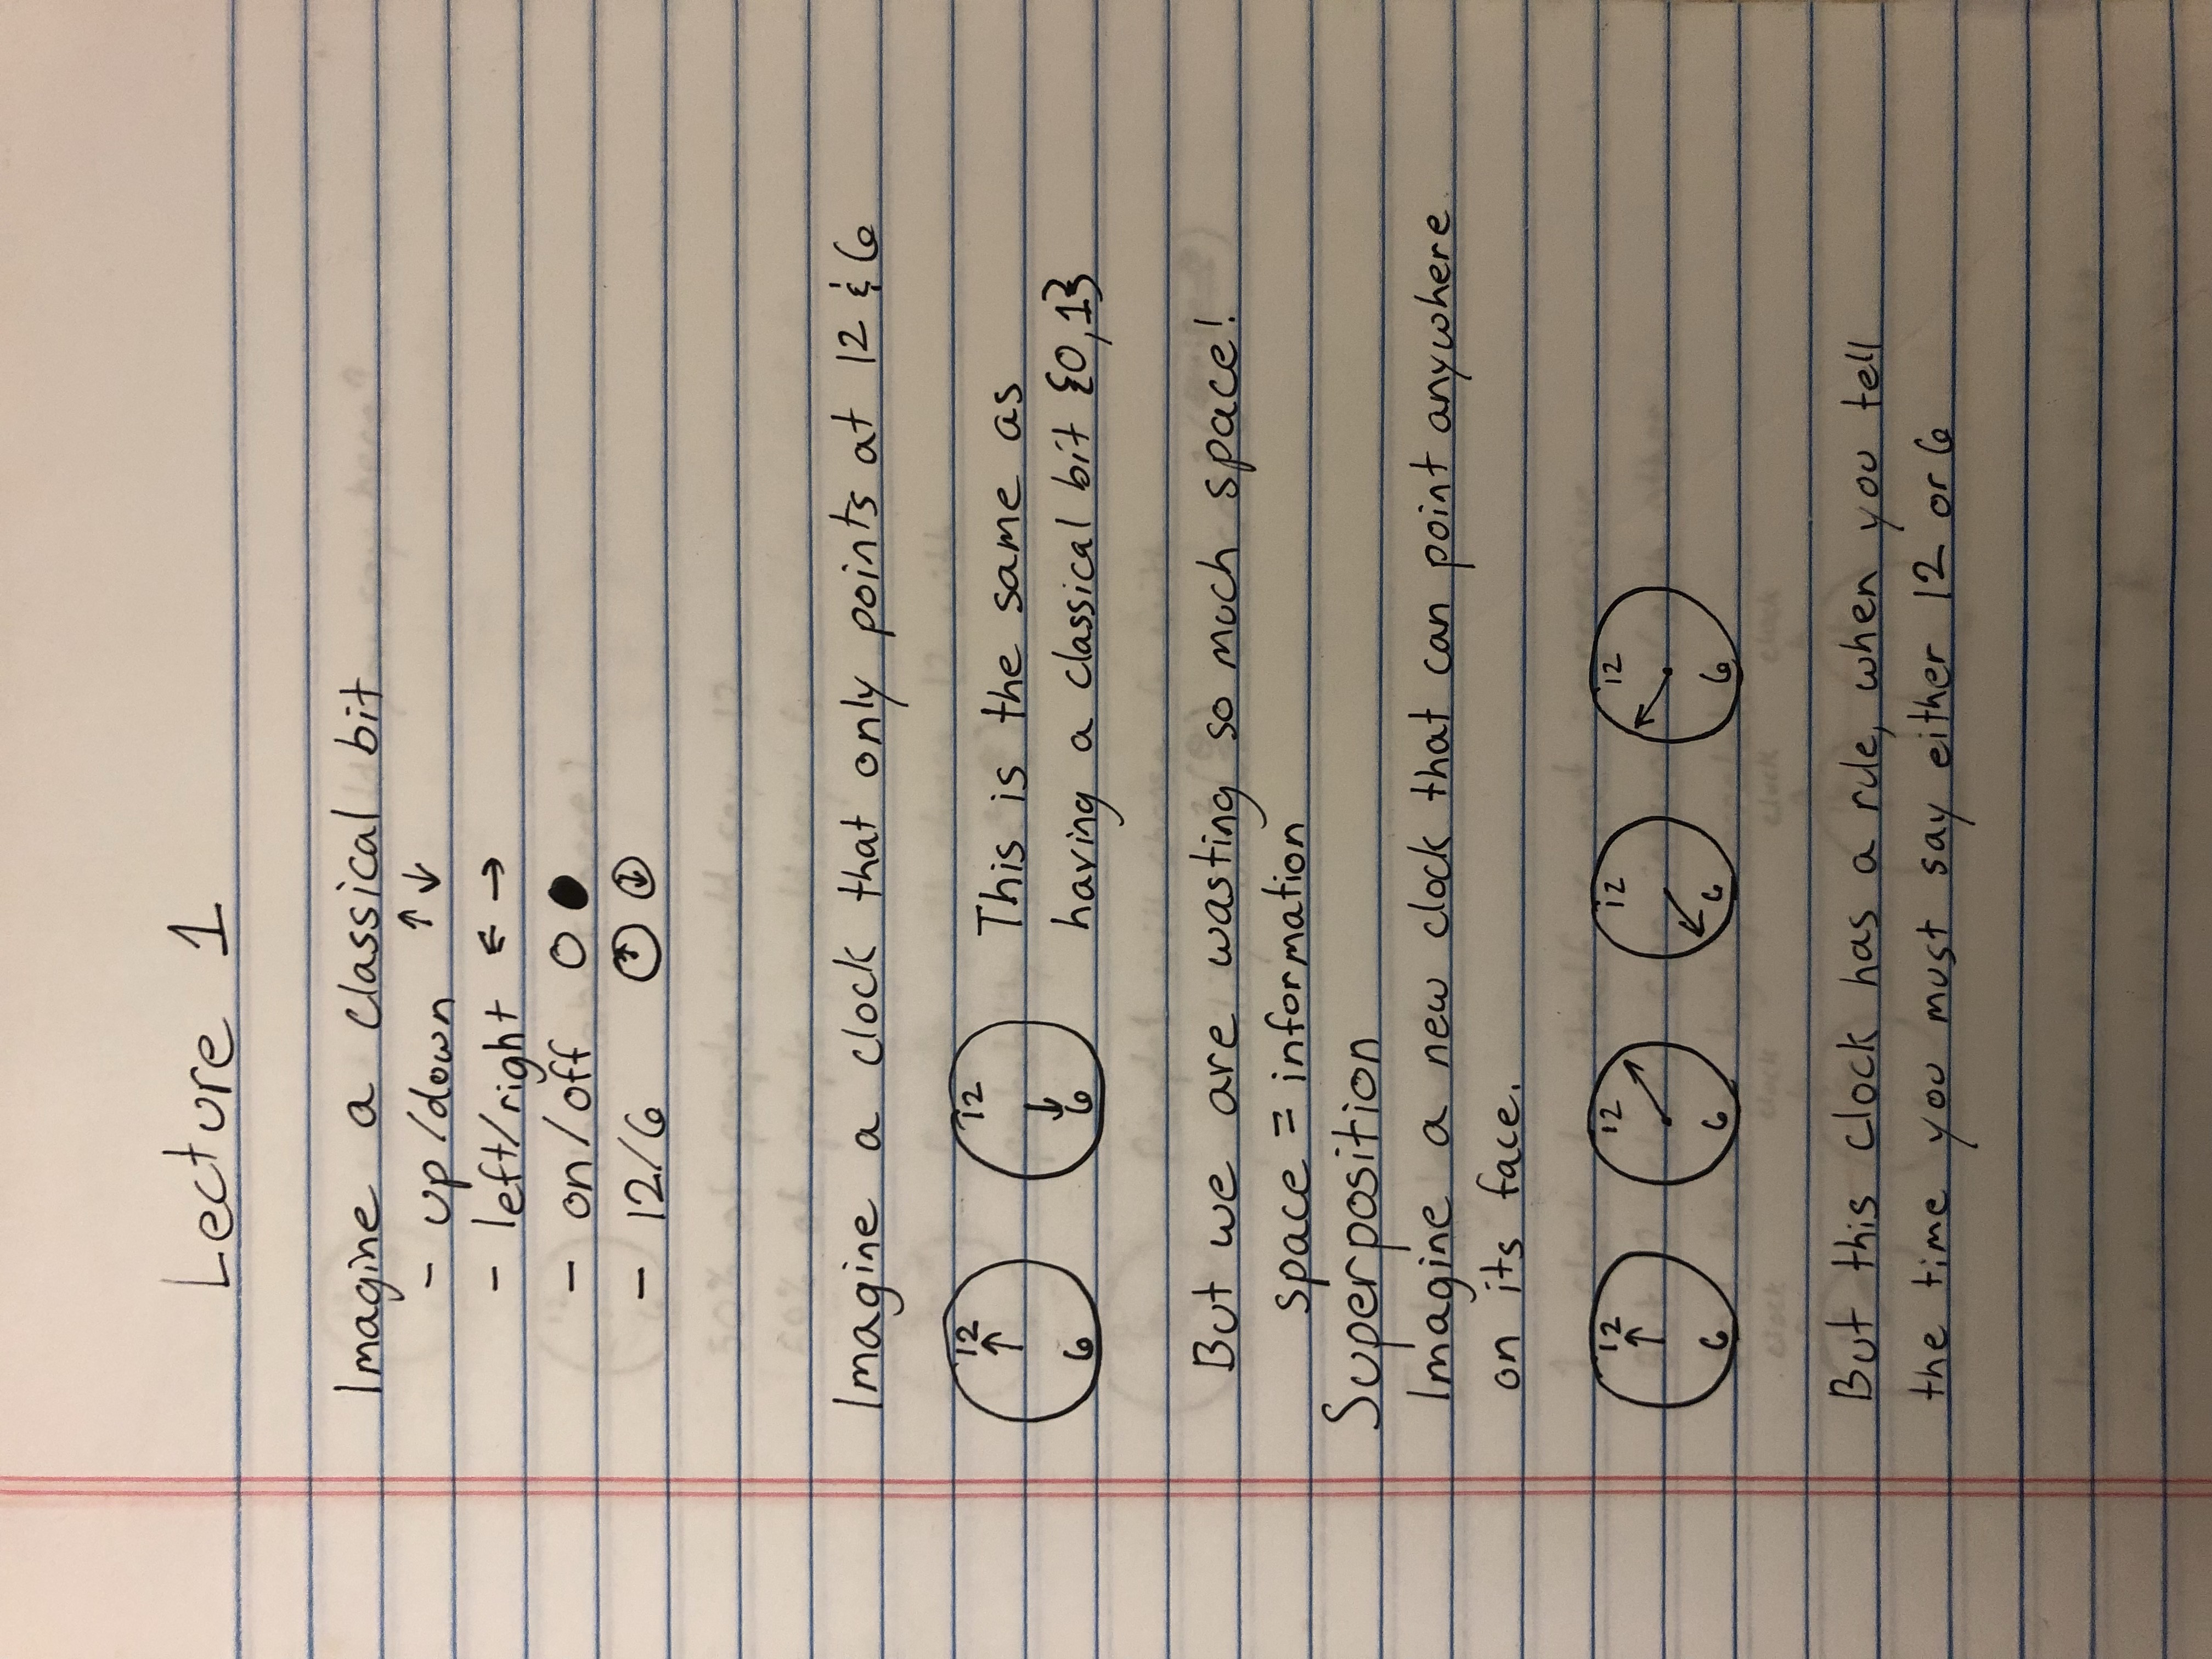 Lecture 1
Imagine a classical bit
- up/down ↑ ↓
- left/right ← →
- on/off
- 12/6
Imagine a clock that only points at 12 & 6
12 12
6 6
This is the same as
having a classical bit {0,1}
But we are wasting so much space!
space = information
Superposition
Imagine a new clock that can point anywhere
on its face.
12 12 12 12
6 6 6 6
But this clock has a rule, when you tell
the time you must say either 12 or 6